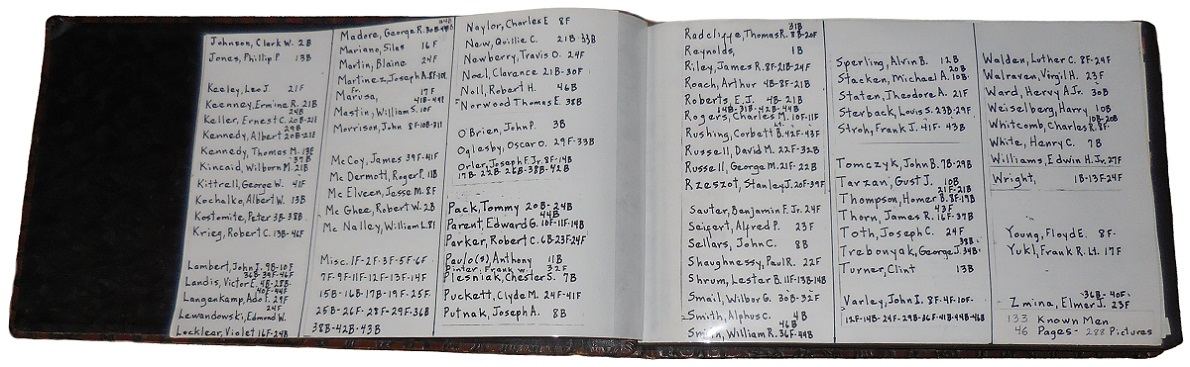 Johnson, Clark W. 2B
Jones, Phillip P 13B
Keeley, Leo J. 21F
Keenney, Ermine R. 21B
24B
Keller, Ernest C. 20B-21B
29B
Kennedy, Albert 20B-21B
Kennedy, Thomas M. 13F
37B
Kincaid, Wilborn M. 21B
Kittrell, George W. 41F
Kochalko, Albert W. 13B
Kostomite, Peter 3B-38B
Krieg, Robert C. 13B-46F
Lambert, John J. 9B-10F
36B-39F-46F
Landis, Victor E. 4B-25B-
40F-44F
Langenkamp, Ado I. 29F
24F
Lewandowski, Edmond W.
Locklear, Violet 16F-24B
Madore, George R. 30B-44B
Mariano, Silas 16F
Martin, Blaine 24F
Martinez, Joseph A. 8F-10F
Fr.
Marusa, 17F
41B-44F
Mastin, William S. 10F
Morrison, John 8F-10B-31F
McCoy, James 39F-41F
Mc Dermott, Roger P. 11B
Mc Elveen, Jesse M. 8F
Mc Ghee, Robert W. 2B
Mc Nalley, William L.
Misc. 1F-2F-3F-5F-6F
7F-9F-11F-12F-13F-14F
15B-16B-17B-19F-25F-
25B-26F-28F-29F-36B
38B-42B-43B
Naylor, Charles E 8F
New, Quillie C. 21B-33B
Newberry, Travis O. 24F
Noel, Clarance 21B-30F
Noll, Robert H. 46B
Norwood Thomas E. 38B
O'Brien, John P. 3B
Oglesby, Oscar O. 29F-33B
Orler, Joseph F. Jr. 8F-14B
17B-22B-26B-38B-42B
Pack, Tommy 20B-24B
44B
Parent, Edward G. 10F-11F-14B
Parker, Robert C. 6B-23F-24F
Paulo(s), Anthony 11B
Pinter, Frank W. 32F
Plesniak, Chester S. 7B
Puckett, Clyde M. 24F-41F
Putnak, Joseph A. 8B
31B
Radclyffe, Thomas R. 8B-20F
Reynolds, 1B
Riley, James R. 8F-21B-24F
Roach, Arthur 4B-8F-21B
Roberts, E.J. 4B-21B
14B-31B-42B-44B
Rogers, Charles M. 10F-11F
Rushing, Corbett B. 42F-43F
Russell, David M. 22F-32B
Russell, George M. 21F-22B
Rzeszot, Stanley J. 20F-39F
Sauter, Benjamin F. Jr. 24F
Seifert, Alfred P. 23F
Sellars, John C. 8B
Shaughnessy, Paul R. 22F
Shrum, Lester B. 11F-13B-14B
Smail, Wilbor G. 30B-32F
Smith, Alphus C. 4B
46B
Smith, William R. 36F-44B
Sperling, Alvin B. 12B
20B
Stacken, Michael A. 10B-
Staten, Theodore A. 21F
Sterback, Louis S. 23B-29F
Stroh, Frank J. 41F-43B
Tomczyk, John B. 7B-29B
Tarzan, Gust J. 10B
21F-21B
Thompson, Homer B. 8F-19B
43F
Thorn, James R. 16F-37B
Toth, Joseph C. 24F
38B
Trebonyak, George J. 34B-
Turner, Clint 13B
Varley, John I. 8F-4F-10F-
12F-14B-24F-29B-36F-41B-44B-46B
Walden, Lother C. 8F-24F
Walraven, Virgil H. 23F
Ward, Hervy A Jr. 30B
Weiselberg, Harry 10B
10B-20B
Whitcomb, Charles R. 8F-
White, Henry C. 7B
Williams, Edwin H. Jr. 27F
Wright, 1B-13F-24F
Young, Floyd E. 8F-
Yukl, Frank R. Lt. 17F
36B-40F-
Zmina, Elmer J. 23F
133 Known Men
46 Pages- 288 Pictures